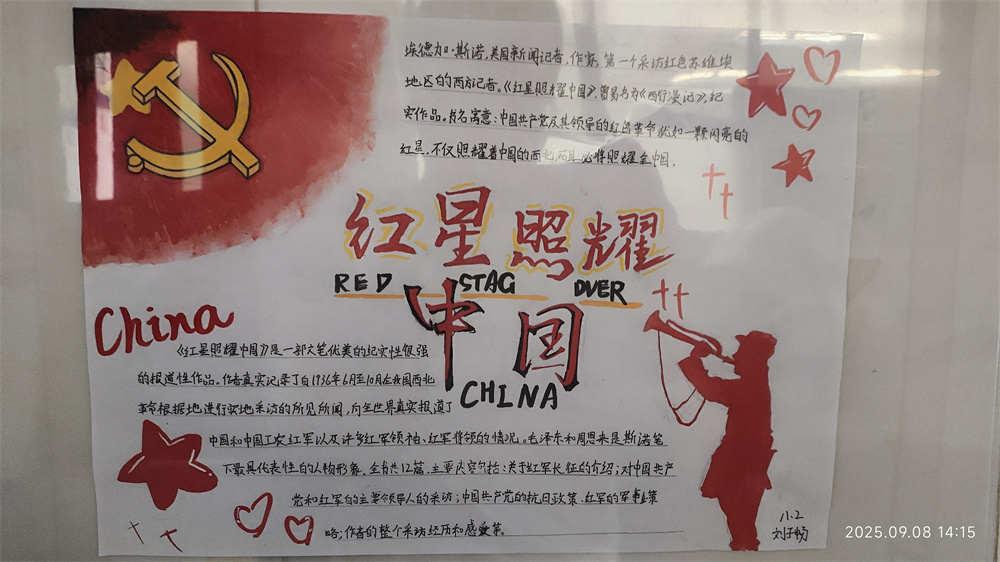 埃德加·斯诺,美国新闻记者,作家,第一个采访红色苏维埃
地区的西方记者。《红星照耀中国》,曾易名为《西行漫记》,纪
实作品。书名寓意:中国共产党及其领导的红色革命犹如一颗闪亮的
红星,不仅照耀着中国的西北,而且必将照耀全中国。
红星照耀
RED STAG OVER
中国
CHINA
China
《红星照耀中国》是一部文笔优美的纪实性很强
的报道性作品。作者真实记录了自1936年6月至10月在我国西北
革命根据地进行实地采访的所见所闻,向全世界真实报道了
中国和中国工农红军以及许多红军领袖、红军将领的情况。毛泽东和周恩来是斯诺笔
下最具代表性的人物形象。全书共12篇,主要内容包括:关于红军长征的介绍;对中国共产
党和红军的主要领导人的采访;中国共产党的抗日政策,红军的军事策
略;作者的整个采访经历和感受等。
八.2
2025.09.08 14:15